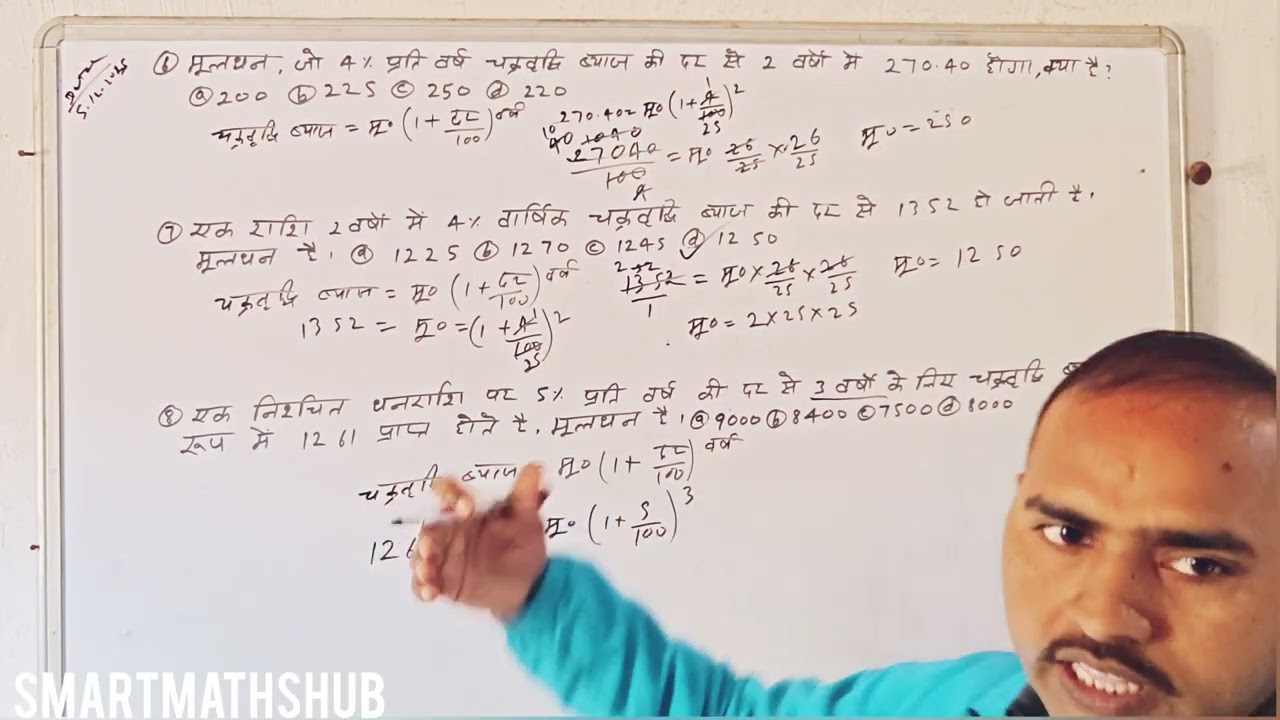 ⑥ मूलधन, जो 4% प्रति वर्ष चक्रवृद्धि ब्याज की दर से 2 वर्षों में 270.40 होगा, क्या है?
ⓐ 200 ⓑ 225 ⓒ 250 ⓓ 220
चक्रवृद्धि ब्याज = मू० (1 + दर/100)^वर्ष
270.40 = मू० (1 + 4/100)^2
27040/100 = मू० 26/25 × 26/25
मू० = 250
⑦ एक राशि 2 वर्षों में 4% वार्षिक चक्रवृद्धि ब्याज की दर से 1352 हो जाती है.
मूलधन है. ⓐ 1225 ⓑ 1270 ⓒ 1245 ⓓ 1250
चक्रवृद्धि ब्याज = मू० (1 + दर/100)^वर्ष
1352 = मू० = (1 + 4/100)^2
1352/1 = मू० × 26/25 × 26/25
मू० = 2 × 25 × 25
मू० = 1250
⑧ एक निश्चित धनराशि पर 5% प्रति वर्ष की दर से 3 वर्षों के लिए चक्रवृद्धि
रूप में 1261 प्राप्त होते है. मूलधन है. ⓐ 9000 ⓑ 8400 ⓒ 7500 ⓓ 8000
चक्रवृद्धि ब्याज = मू० (1 + दर/100)^वर्ष
126 मू० (1 + 5/100)^3
SMARTMATHSHUB